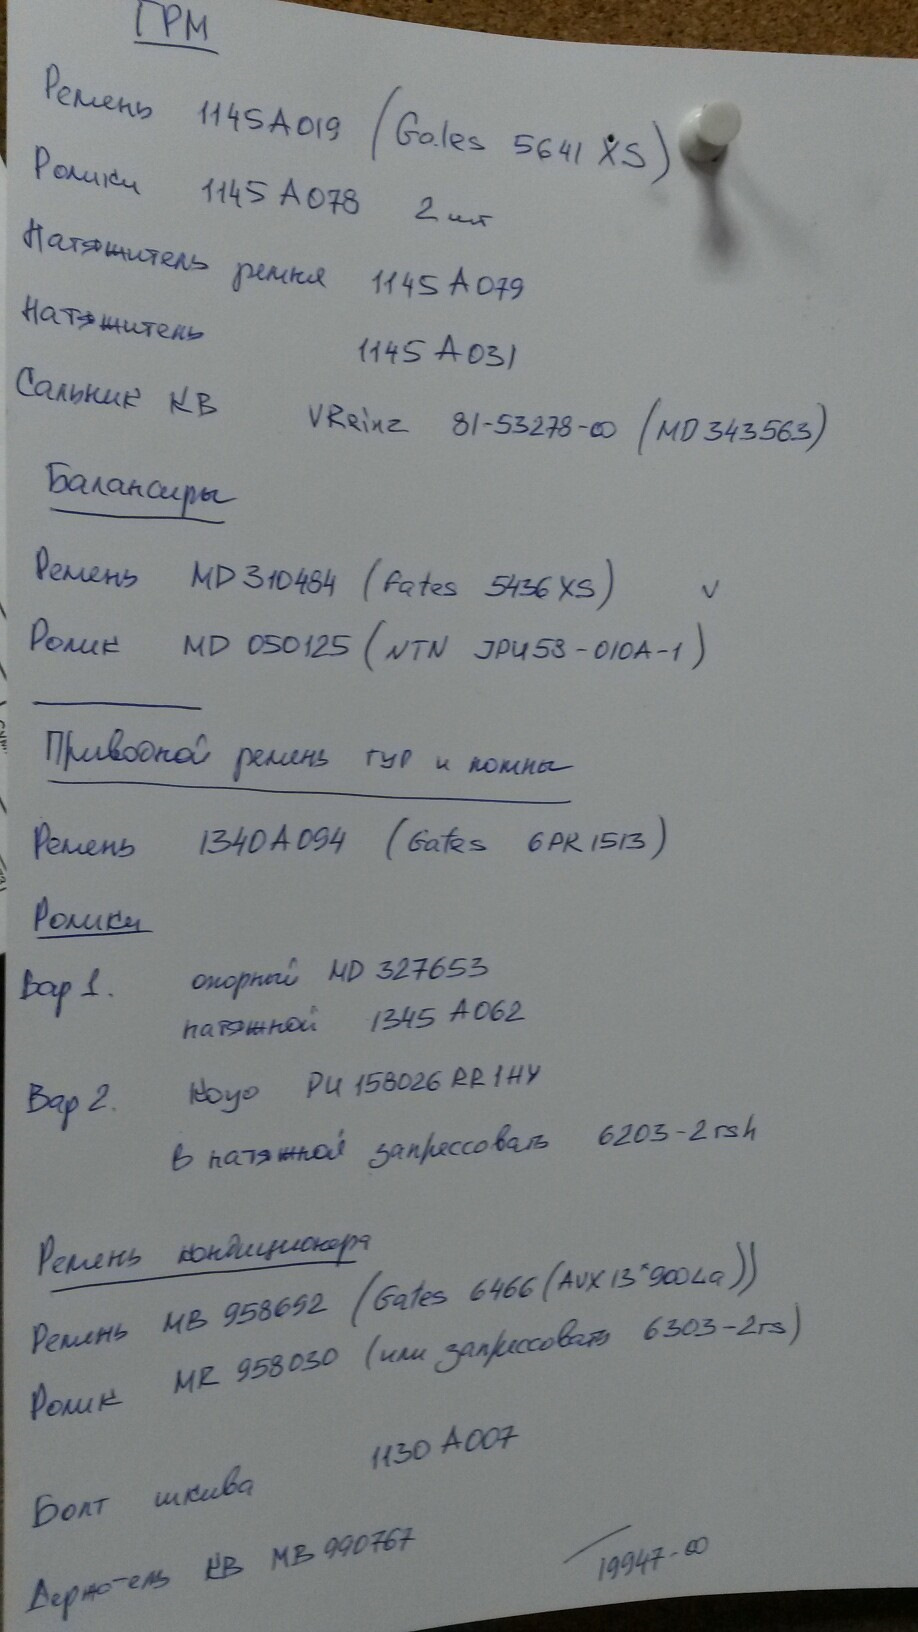 ГРМ
Ремень 1145A019 (Gates 5641 XS)
Ролики 1145A078 2 шт
Натяжитель ремня 1145A079
Натяжитель 1145A031
Сальник КВ VReinz 81-53278-00 (MD343563)
Балансиры
Ремень MD310484 (Gates 5436XS) v
Ролик MD 050125 (NTN JPU58-010A-1)
Приводной ремень гур и помпы
Ремень 1340A094 (Gates 6PK1513)
Ролики
Вар 1. опорный MD 327653
натяжной 1345A062
Вар 2. Koyo PU158026RR1HY
в натяжной запрессовать 6203-2rsh
Ремень кондиционера
Ремень MB 958692 (Gates 6466 (AVX13*900La))
Ролик MR 958030 (или запрессовать 6303-2rs)
Болт шкива 1130A007
Держатель КВ MB990767
19947-00